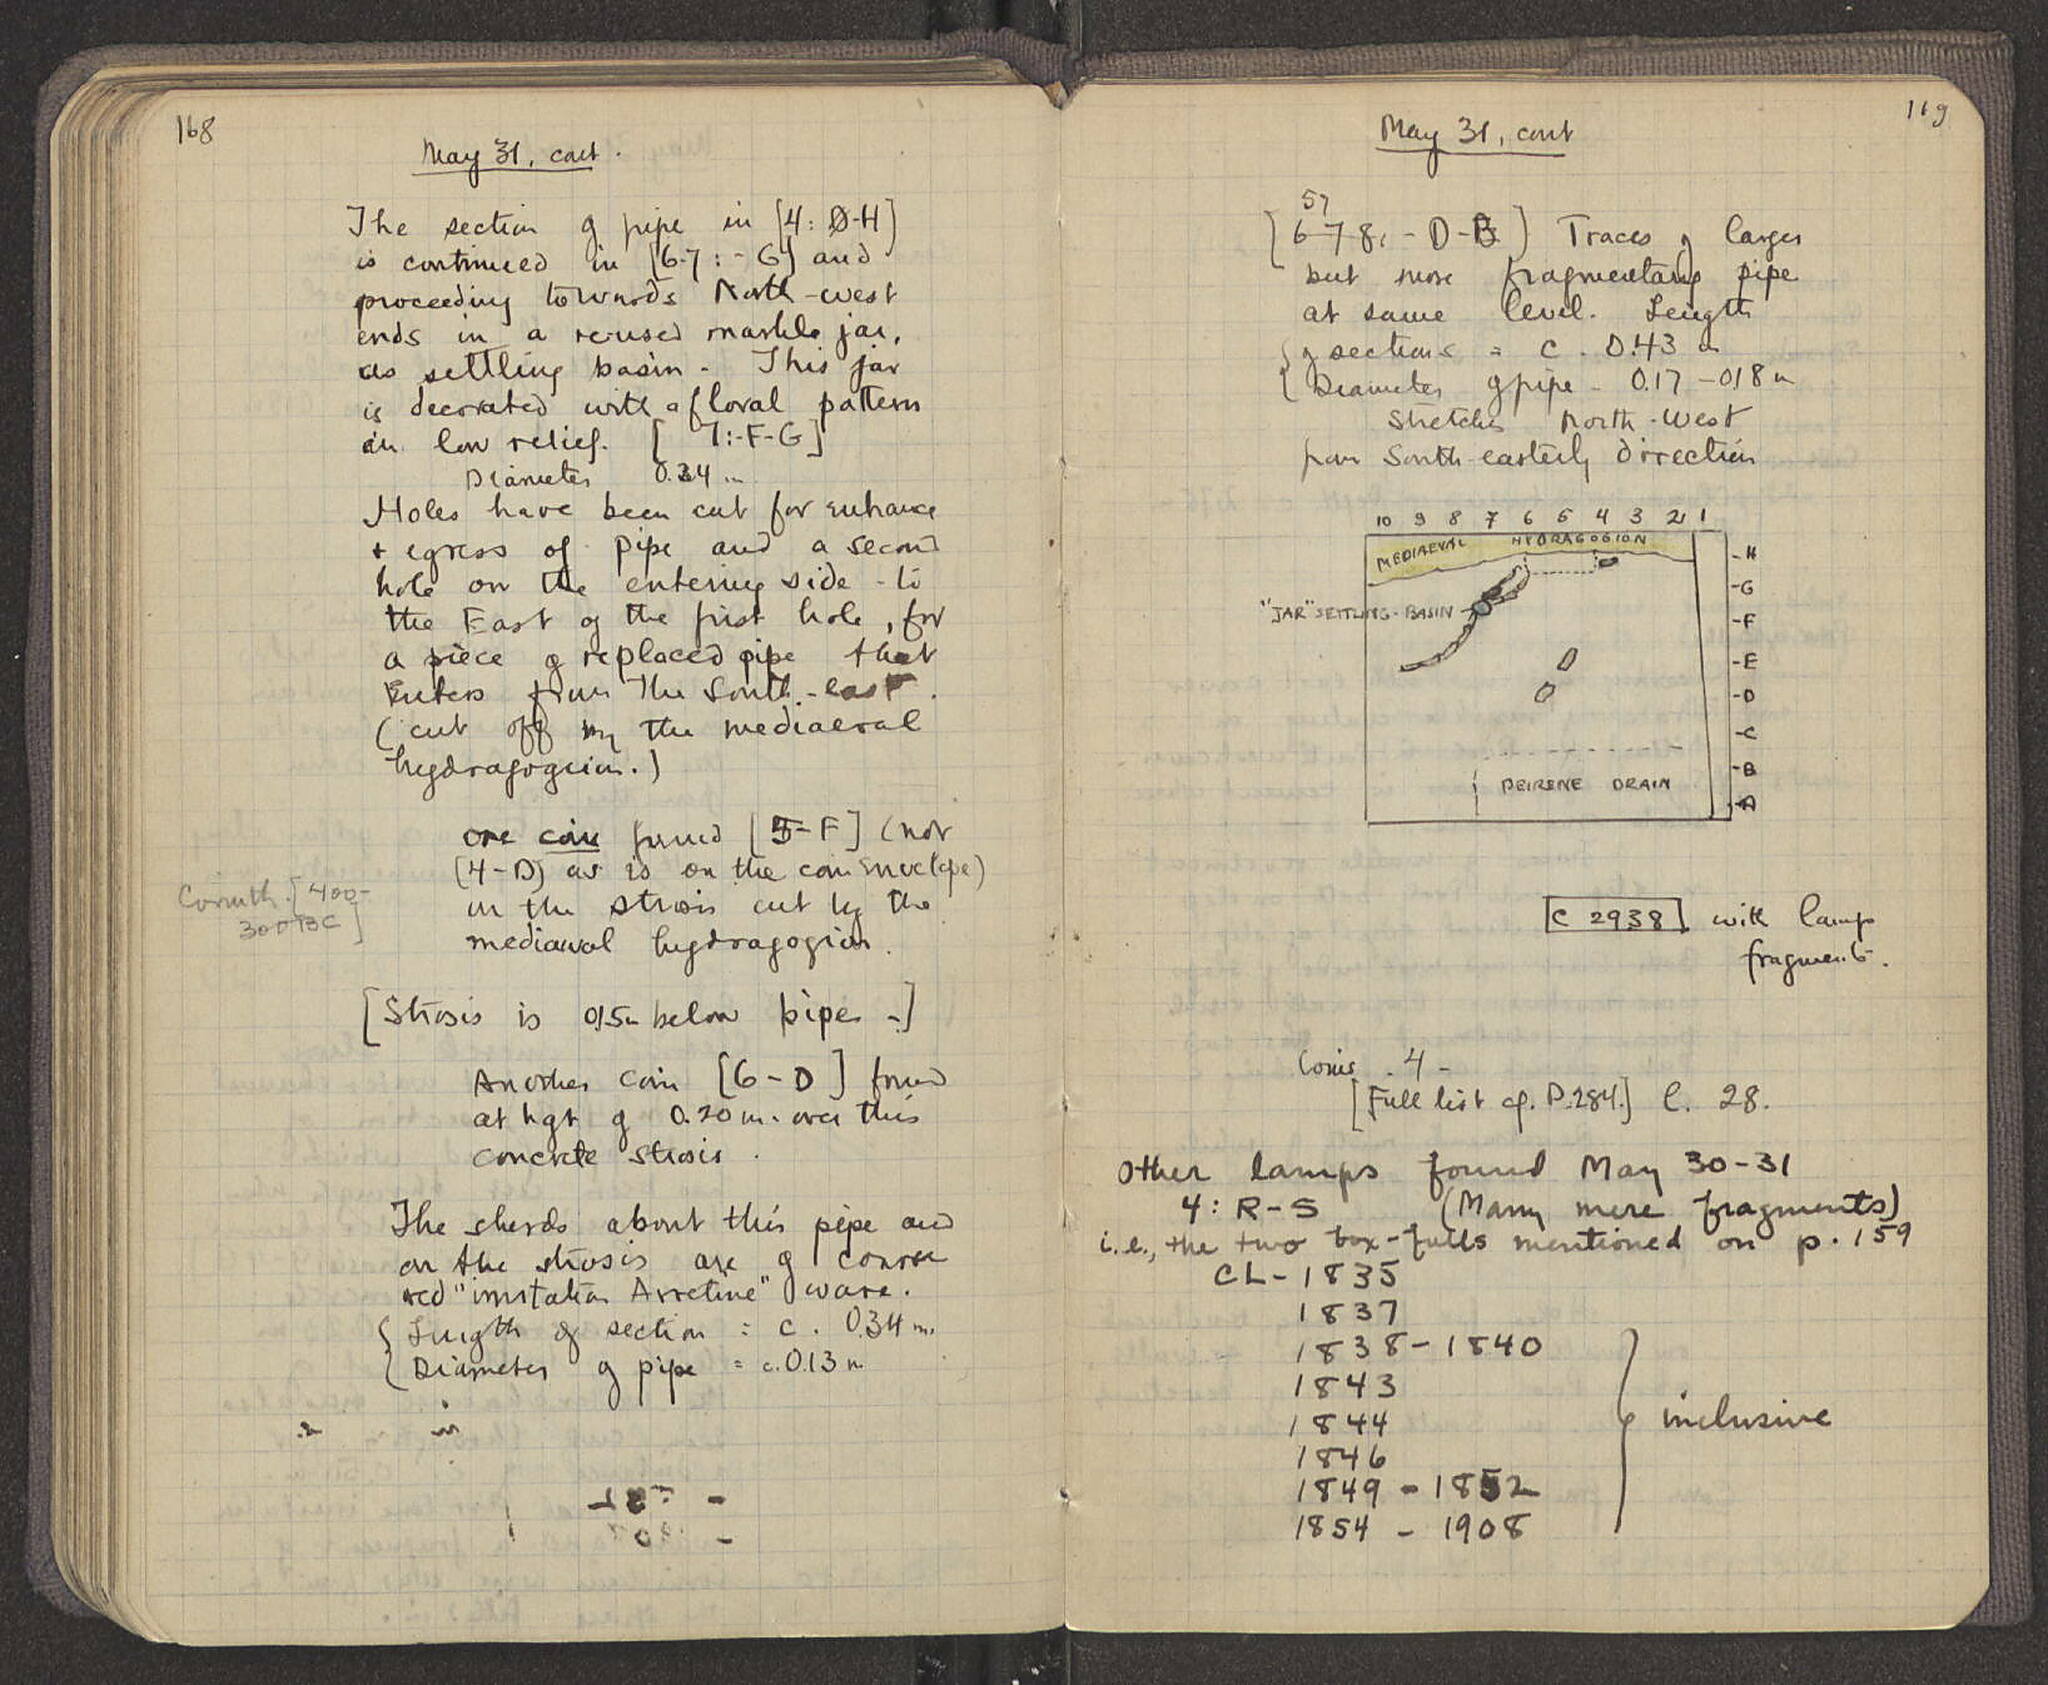 168
May 31, cont.
The section of pipe in [4: D-H]
is continued in [6-7: - G] and
proceeding towards North-west
ends in a re-used marble jar,
as settling basin. This jar
is decorated with a floral pattern
in low relief. [ 7:-F-G]
Diameter 0.34 m
Holes have been cut for entrance
+ egress of pipe and a second
hole on the entering side - to
the East of the first hole, for
a piece of replaced pipe that
enters from the South-east.
(cut off by the mediaeval
hydragogion.)
one coin found [5-F] (not
[4-D] as is on the coin envelope)
in the strosis cut by the
mediaeval hydragogion.
Corinth. [400-
300 BC]
[Strosis is 0.15m below pipe -]
Another coin [6-D] found
at hgt of 0.20 m. over this
concrete strosis.
The sherds about this pipe and
on the strosis are of coarse
red "imitation Arretine" ware.
Length of section = c. 0.34 m.
Diameter of pipe = c. 0.13 m
May 31, cont
[6 7 8: - D-B] Traces of larger
57
but more fragmentary pipe
at same level. Length
of sections = c. 0.43 m
Diameter of pipe - 0.17 - 018 m
Stretches North-West
from South-easterly direction
10 9 8 7 6 5 4 3 2 1
MEDIAEVAL HYDRAGOGION
-H
-G
"JAR" SETTLING-BASIN
-F
-E
-D
-C
-B
PEIRENE DRAIN
-A
C 2938 with lamp
fragments.
Coins - 4 -
[Full list cf. P.284.] C. 28.
Other lamps found May 30-31
4: R-S (Many mere fragments)
i.e., the two box-fulls mentioned on p. 159
CL-1835
1837
1838-1840
1843
1844
1846
1849 - 1852
1854 - 1908
inclusive